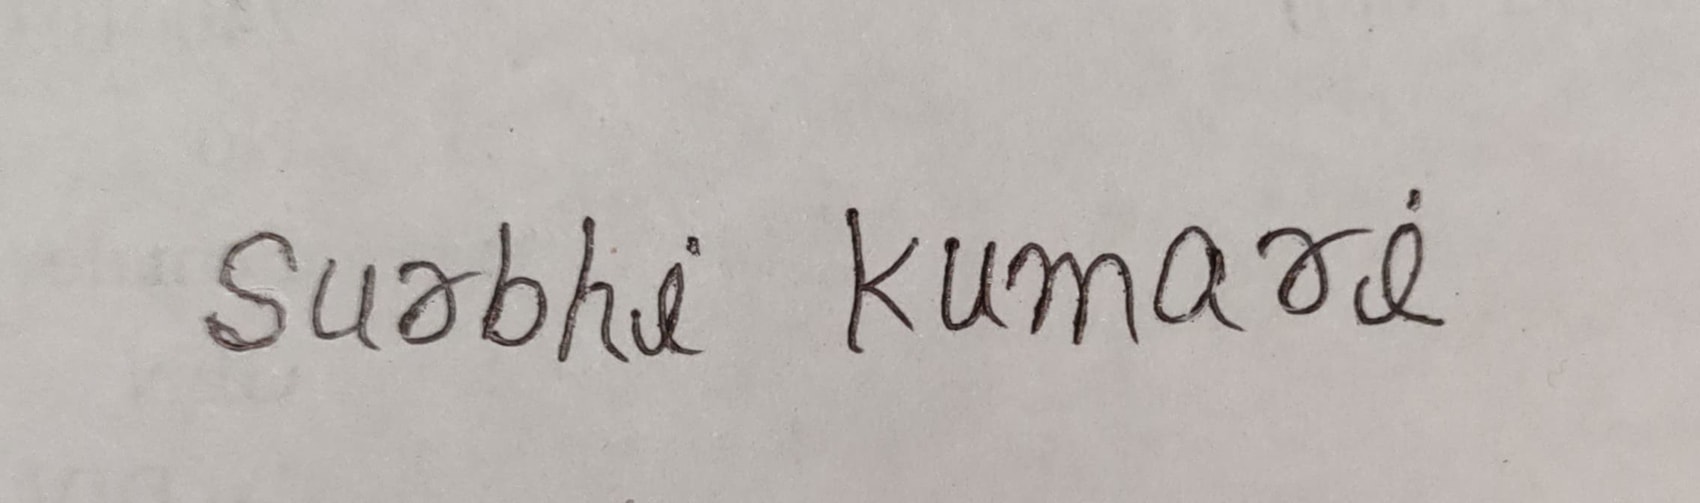 Surbhi Kumari